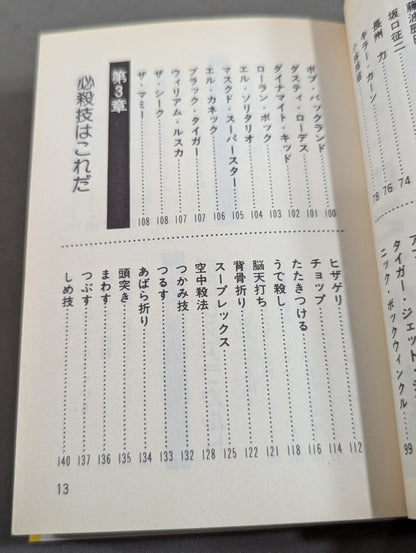 坂口征二 74
長州 力 76
キラー・カーン 78
タイガー・ジェット・
ニック・ボックウィンクル 99
ボブ・バックランド 100
ダスティ・ローデス 101
ダイナマイト・キッド 102
ローラン・ボック 103
エル・ソリタリオ 104
マスクド・スーパースター 105
エル・カネック 106
ブラック・タイガー 107
ウィリアム・ルスカ 107
ザ・シーク 108
ザ・マミー 108
第3章
必殺技はこれだ
ヒザゲリ 112
チョップ 114
たたきつける 116
うで殺し 118
脳天打ち 121
背骨折り 122
スープレックス 125
空中殺法 128
つかみ技 132
つるす 133
あばら折り 134
頭突き 135
まわす 136
つぶす 137
しめ技 140
13